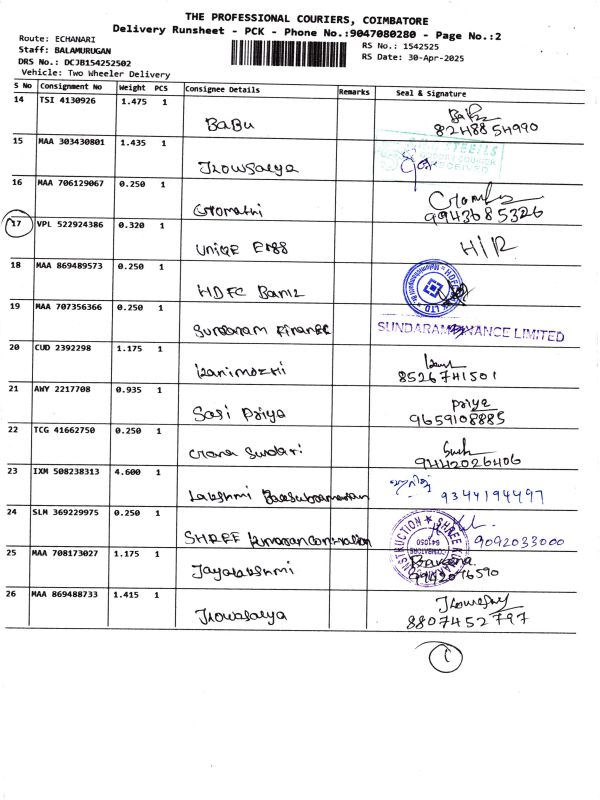 THE PROFESSIONAL COURIERS, COIMBATORE
Delivery Runsheet - PCK - Phone No.:9047080280 - Page No.:2
Route: ECHANARI
Staff: BALAMURUGAN
DRS No.: DCJB154252502
Vehicle: Two Wheeler Delivery
RS No.: 1542525
RS Date: 30-Apr-2025
S No Consignment No Weight PCS Consignee Details Remarks Seal & Signature
14 TSI 4130926 1.475 1
BABU
8248854990
15 MAA 303430801 1.435 1
Jhowsalya
16 MAA 706129067 0.250 1
Gomathi
9943685326
17 VPL 522924386 0.320 1
UNIQE Engg
H/R
18 MAA 869489573 0.250 1
HDFC Bank
19 MAA 707356366 0.250 1
Sundaram Finance
SUNDARAM FINANCE LIMITED
20 CUD 2392298 1.175 1
Kanimozhi
8526741501
21 AWY 2217708 0.935 1
Sasi Priya
Priya
9659108885
22 TCG 41662750 0.250 1
Gnana Sundari
9442026406
23 IXM 508238313 4.600 1
Lakshmi Balasubramanian
9344194497
24 SLM 369229975 0.250 1
SHREE Kumaran Construction
9092033000
25 MAA 708173027 1.175 1
Jayalakshmi
9942076590
26 MAA 869488733 1.415 1
Jhowsalya
8807452797
1